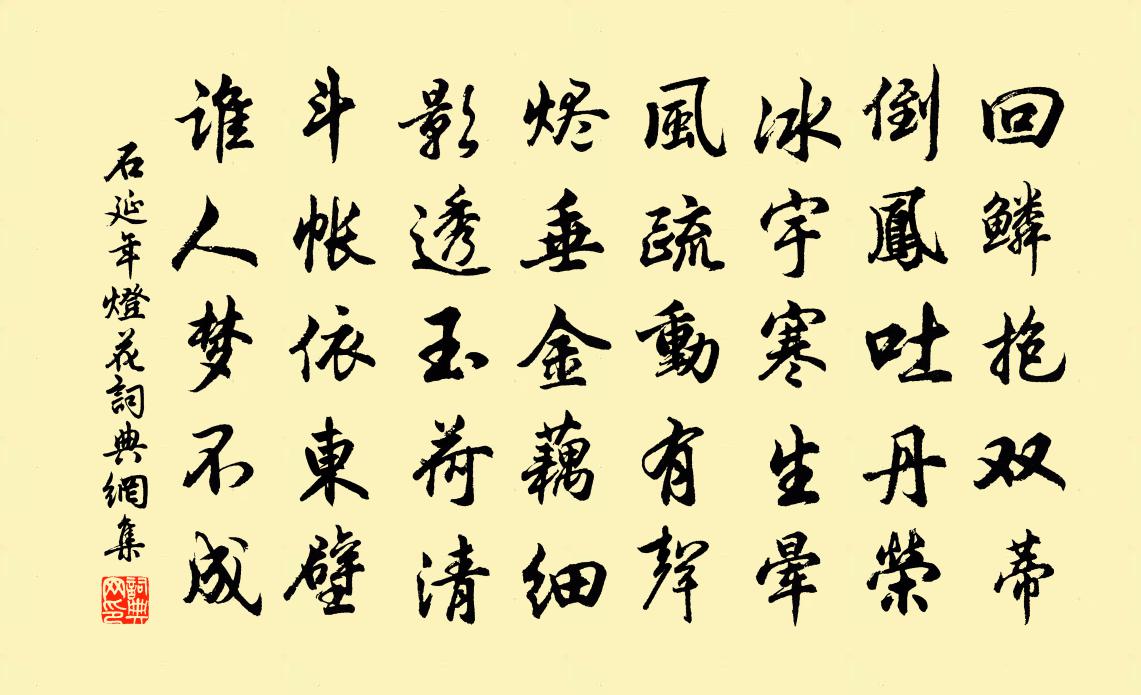 回鱗抱双蒂
倒鳳吐丹榮
冰宇寒生暈
風疏動有聲
烬垂金藕细
影透玉荷清
斗帐依東壁
谁人梦不成
石延年燈花詞典網集
詞典网印